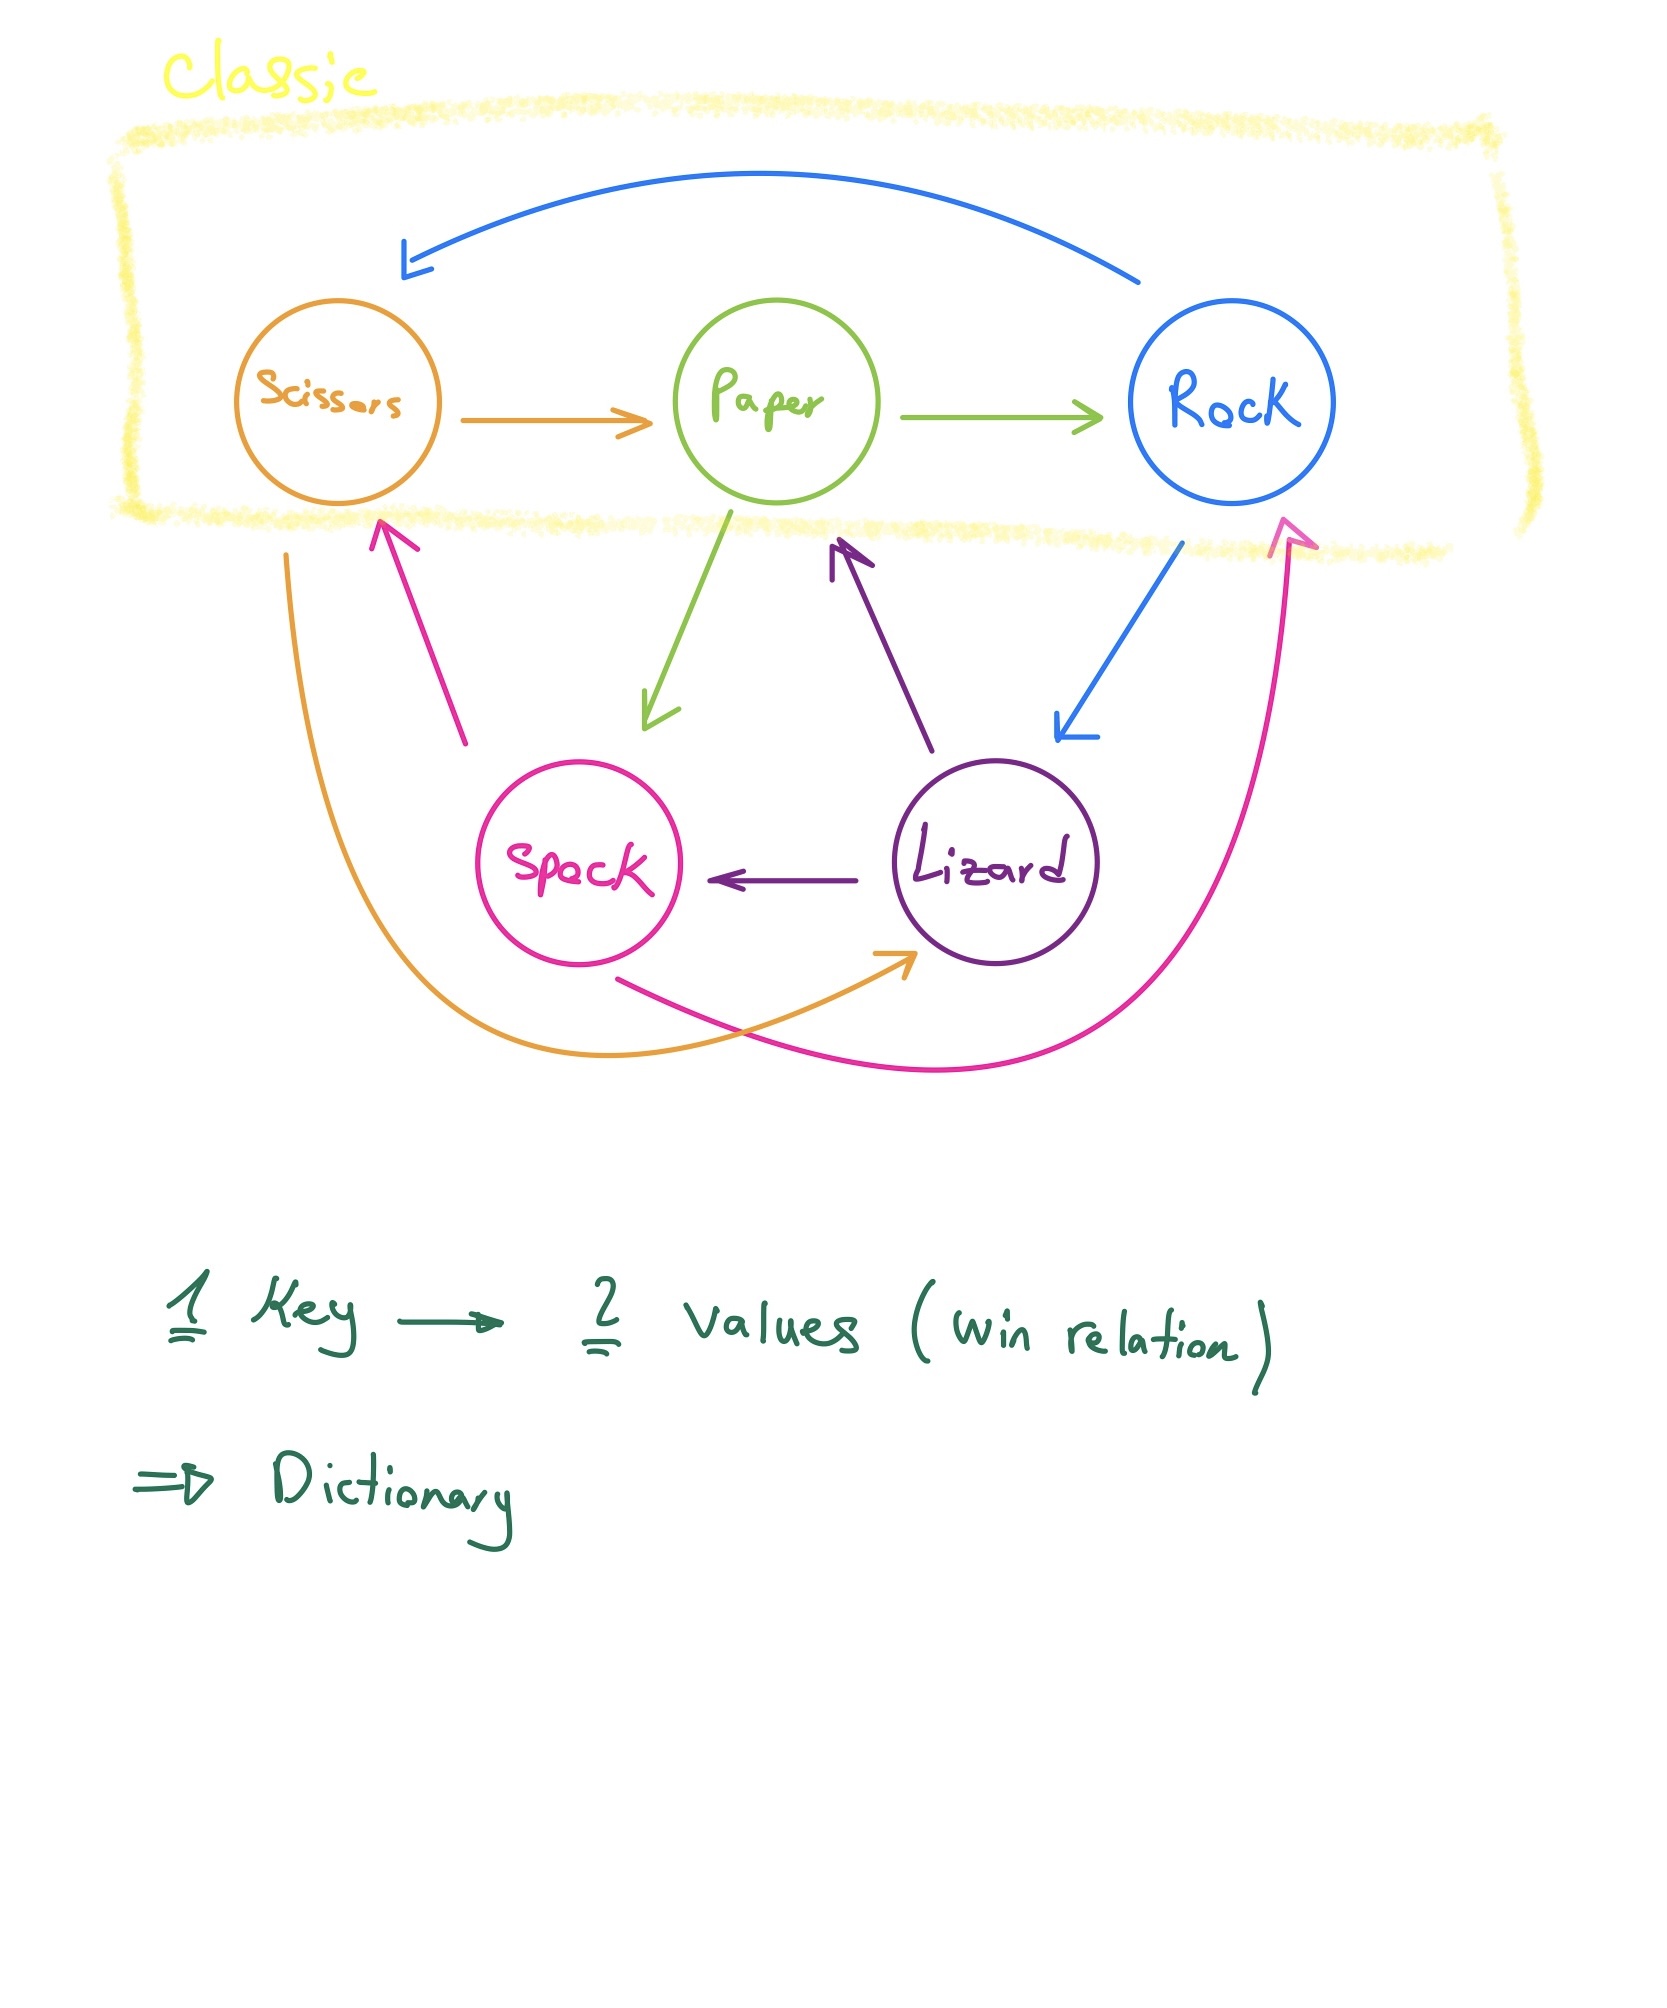 Classic
Scissors
Paper
Rock
Spock
Lizard
1 Key → 2 values (win relation)
⇒ Dictionary